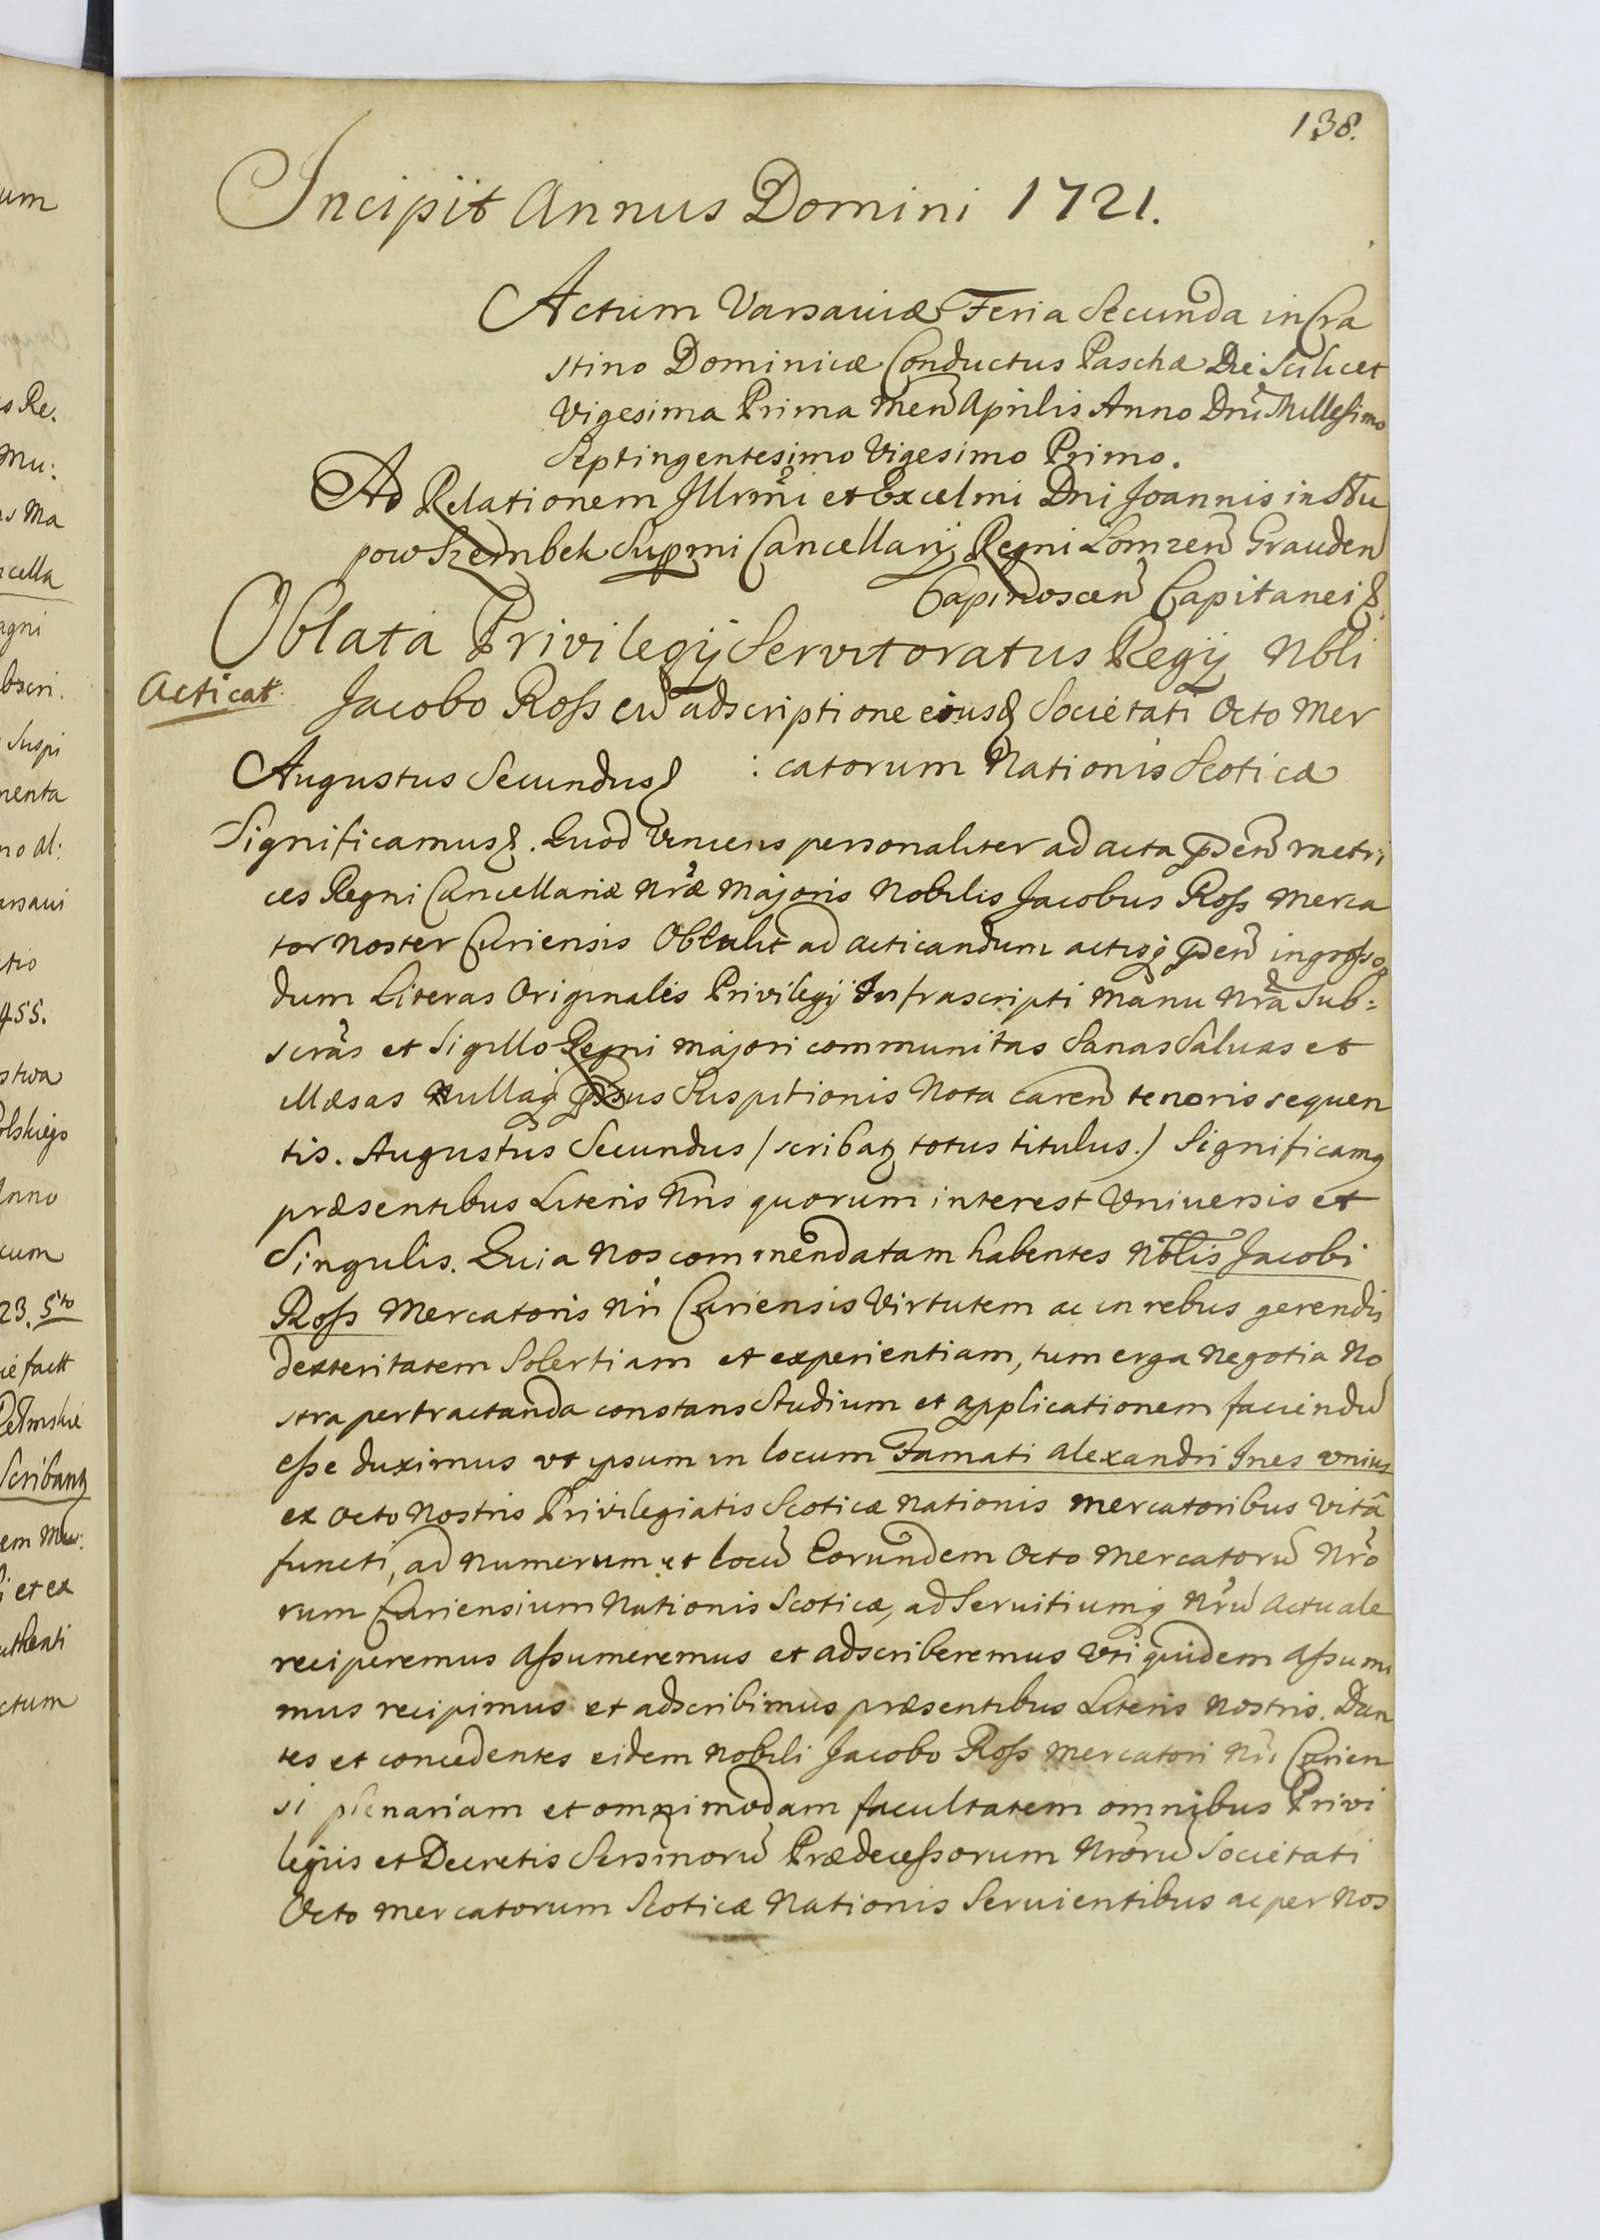 138.
Incipit Annus Domini 1721.
Actum Varsaviæ Feria Secunda in Cra
stino Dominicæ Conductus Paschæ Die Scilicet
Vigesima Prima Men̄ Aprilis Anno Dnī Millesimo
Septingentesimo Vigesimo Primo.
Ad Relationem Illrm̃i et Excelmi Dni Joannis in Słu
pow Szembek Supmi Cancellarij Regni Lomzen̄ Grauden̄
Capinoscen̄ Capitanei &
Oblata Privilegij Servitoratus Regij Nbli
Acticat.
Jacobo Ross cū adscriptione eiusq Societati Octo Mer
: catorum Nationis Scoticæ
Augustus Secundus &
Significamus &. Quod Veniens personaliter ad acta pñen̄ metri
ces Regni Cancellariæ nr̃æ Majoris Nobilis Jacobus Ross Merca
tor Noster Curiensis Obtulit ad acticandum actisq pñen̄ ingrossan
dum Literas Originales Privilegij Infrascripti Manu Nr̃a Sub=
scr̃as et Sigillo Regni majori communitas Sanas Salvas et
illæsas Nullaq pr̃sus Suspitionis Nota caren̄ tenoris sequen
tis. Augustus Secundus /scribatʒ totus titulus./ Significamq
præsentibus Literis Nr̃is quorum interest Universis et
Singulis. Quia Nos commendatam habentes Nblis Jacobi
Ross Mercatoris Nr̃i Curiensis Virtutem ac in rebus gerendis
dexteritatem Solertiam et experientiam, tum erga Negotia No
stra pertractanda constans Studium et applicationem faciendū
esse duximus ut ipsum in locum Famati Alexandri Ines unius
ex Octo Nostris Privilegiatis Scoticæ Nationis Mercatoribus Vitâ
functi, ad Numerum et locū Eorundem Octo Mercatorū Nr̃o
rum Curiensium Nationis Scoticæ, ad Servitiumq Nr̃ū Actuale
reciperemus assumeremus et adscriberemus Uti quidem assumi
mus recipimus et adscribimus præsentibus Literis Nostris. Dan
tes et concedentes eidem Nobili Jacobo Ross Mercatori Nr̃i Curien
si plenariam et omnimodam facultatem omnibus Privi
legiis et Decretis Sersmorū Prædecessorum Nr̃orū Societati
Octo Mercatorum Scoticæ Nationis Servientibus ac per Nos